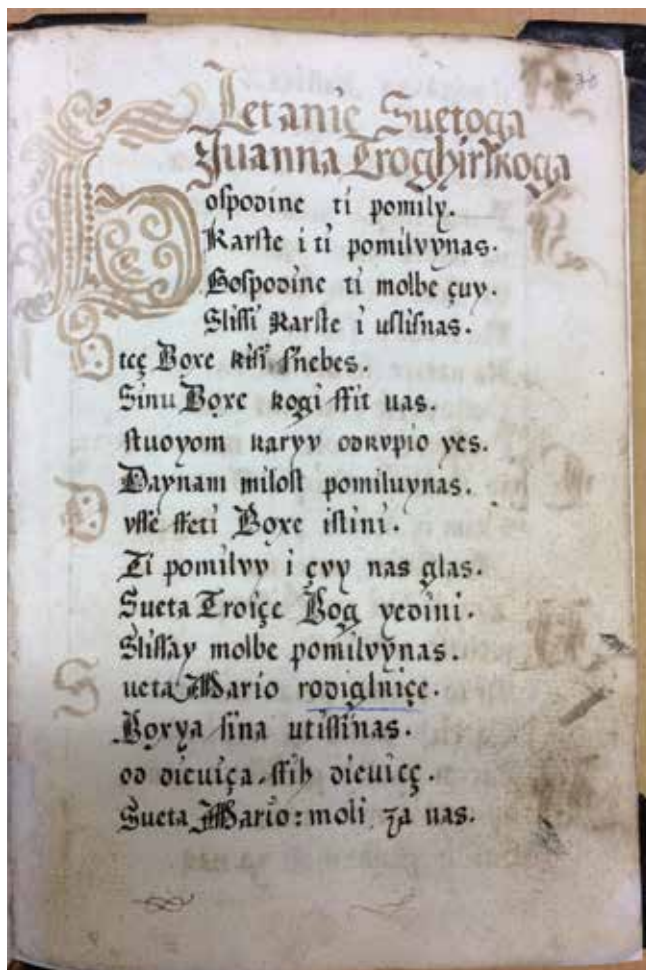 38
Letanie Suetoga
Iuanna Troghirskoga
Gospodine ti pomily.
Karste i ti pomilvynas.
Gospodine ti molbe çuy.
Slissi Karste i uslisnas.
Otcç Boxe kisi snebes.
Sinu Boxe kogi ssit nas.
stuoyom karvy odkvpio yes.
Daynam milost pomiluynas.
Dvsse sseti Boxe istini.
Ti pomilvy i çvy nas glas.
Sueta Troiçe Bog yedini.
Slissay molbe pomilvynas.
Sueta Mario rodiglniçe.
Boxya sina utissinas.
od dieuiça. ssih dieuicç.
Sueta Mario: moli za nas.